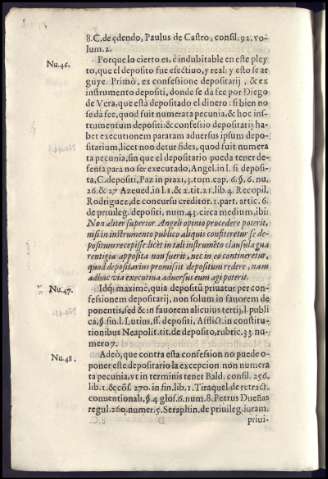 8. C. de edendo, Paulus de Castro, consil. 92. vo-
lum. 2.
Nu. 46. Porque lo cierto es, è indubitable en este pley
to, que el deposito fue efectiuo, y real: y esto se ar
guye. Primò, ex confessione depositarij, & ex
instrumento depositi, donde se da fee por Diego
de Vera, que està depositado el dinero: si bien no
se da fee, quod fuit numerata pecunia, & hoc ins-
trumentum depositi & confessio depositarij ha-
bet executionem paratam aduersus ipsum depo-
sitarium, licet non detur fides, quod fuit numera
ta pecunia, sin que el depositario pueda tener de-
fensa para no ser executado, Angel. in l. si deposi-
ta, C. depositi, Paz in praxi, 3. tom. cap. 6. §. 6. nu.
26. & 27. Azeued. in l. 1. & 2. tit. 21. lib. 4. Recopil.
Rodriguez, de concursu creditor. 1. part. artic. 6.
de priuileg. depositi, num. 43. circa medium, ibi:
Non aliter superius Angeli opinio procedere poterit,
nisi in instrumento publico aliquis confiteretur se de-
positum recepisse licet in tali instrumẽto clausula gua
rentigia apposita non fuerit, nec in eo contineretur,
quod depositarius promisit depositum reddere, nam
adhuc via executiua aduersus eum agi poterit.
Nu. 47. Idq; maximè, quia depositũ priuatur per con-
fessionem depositarij, non solum in fauorem de
ponentis, sed & in fauorem alicuius tertij, l. publi
ca, §. fin. l. Lutius, ff. depositi, Afflict. in constitu-
tionibus Neapolit. tit. de deposito, rubric. 33. nu
mero 7.
Nu. 48. Adeò, que contra esta confession no puede o-
poner este depositario la excepcion non numera
ta pecunia, vt in terminis tenet Bald. consil. 256.
lib. 1. & cõs. 270. in fin. lib. 1. Tiraquel. de retract.
conuentionali, §. 4. glos. 6. num. 8. Petrus Dueñas
regul. 260. numer. 5. Seraphin. de priuileg. iuram.
priui-